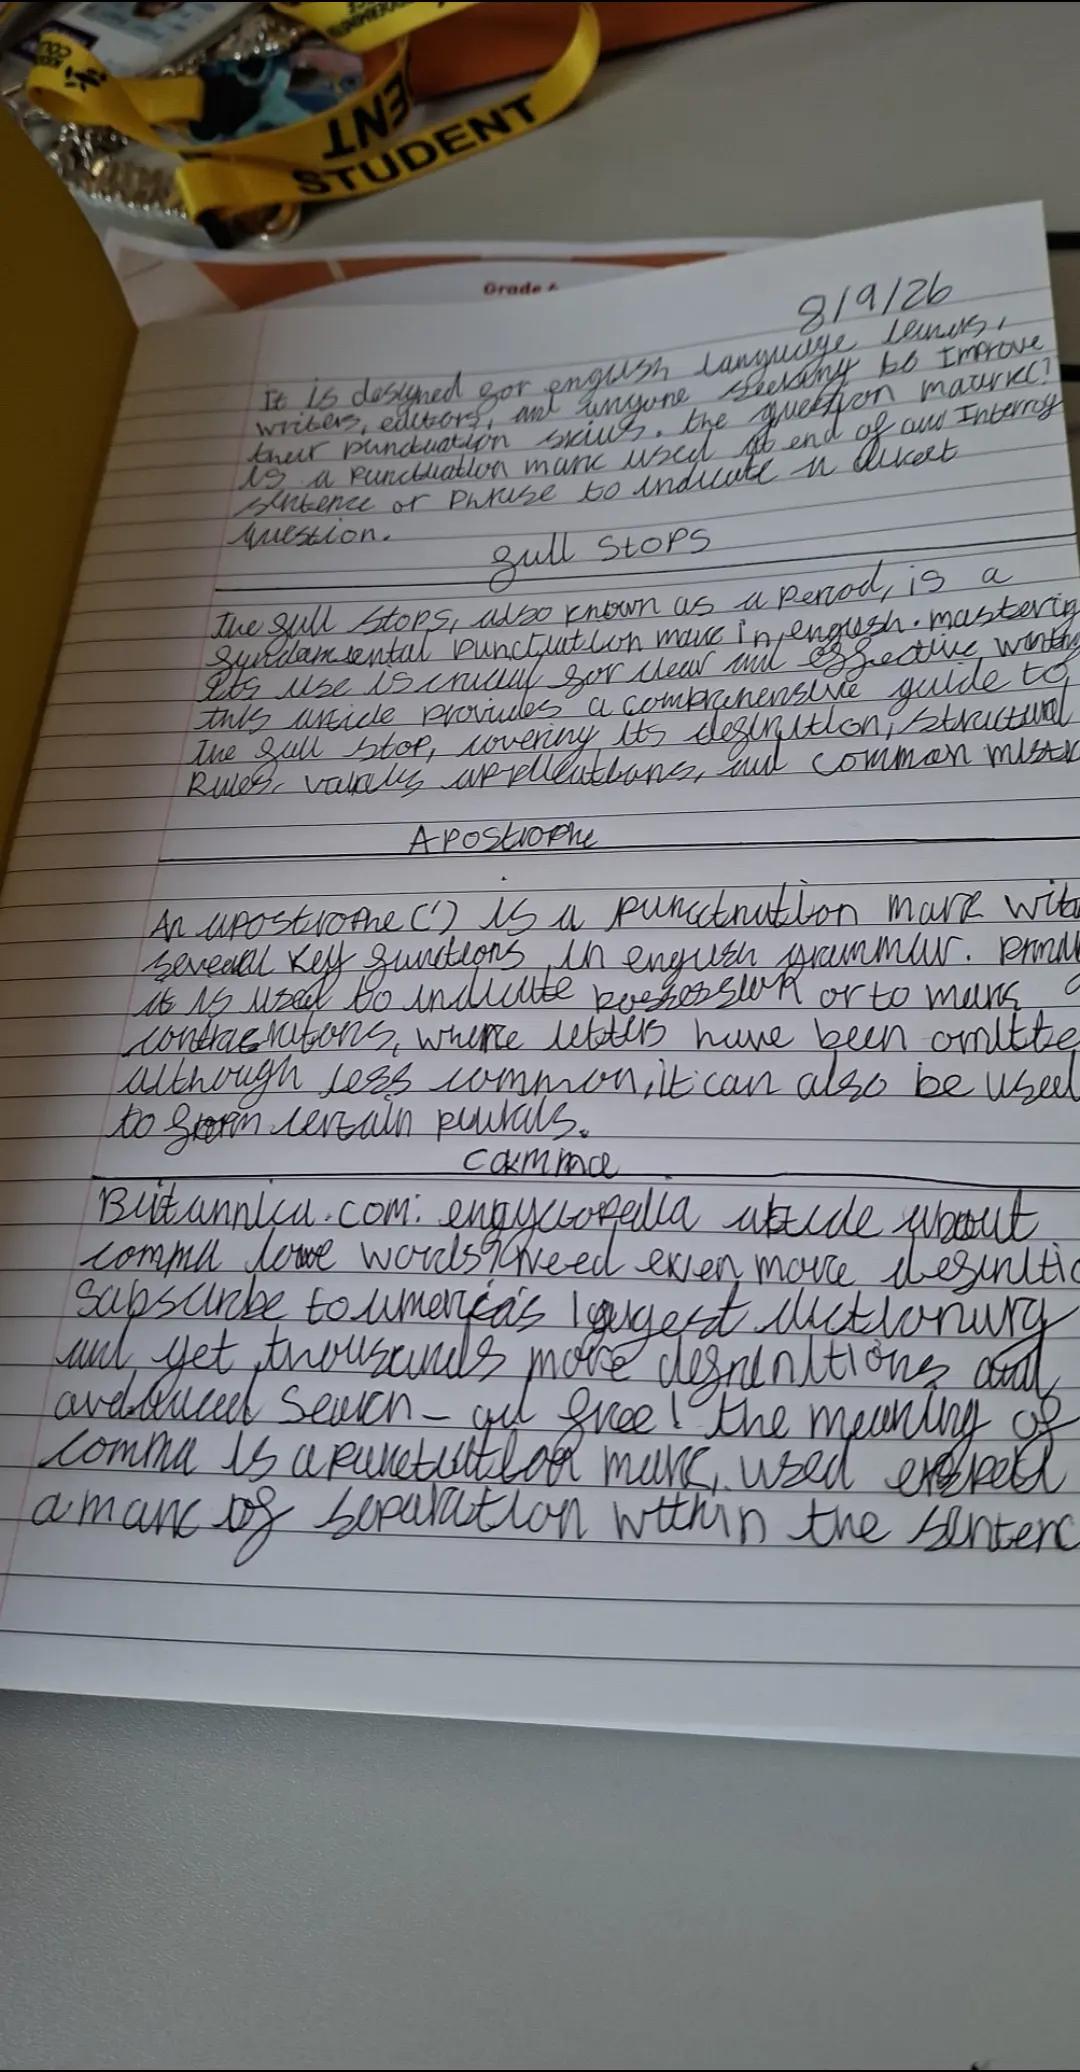 STUDENT
Grade
8/9/26
It is designed for english language lerners,
writers, editors, and anyone seeking to Improve
their punctuation skills. the question mark(?)
is a punctuation mark used at end of an Interrog
sentence or Phrase to indicate a direct
question.
full stops
The full stops, also known as a Period, is a
fundamental punctuation mark in english. mastering
its use is crucial for clear and effective writing
this article provides a comprehensive guide to
The full stop, covering its definition, structural
Rules, various applications, and common mistak
Apostrophe
An apostrophe (') is a punctnution mark with
several key functions in english grammar.
it is used to indicate or to mark
where letters have been omitte
although less common, it can also be used
to form certain plurals.
Comma
Britannica.com: encyclopedia article about
comma love words? need even more definitio
Subscribe to america's largest dictionary
and get thousands more definitions and
search - ad free! the meaning of
comma is a punctuation mark, used
a mark of separation within the sentenc